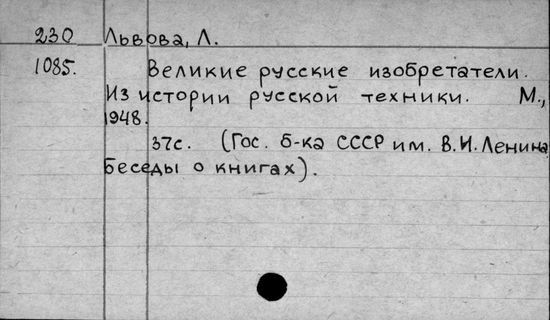 230 Львова, Л.
1085. Великие русские изобретатели.
Из истории русской техники. М.,
1948.
37с. (Гос. б-ка СССР им. В.И. Ленина
Беседы о книгах).